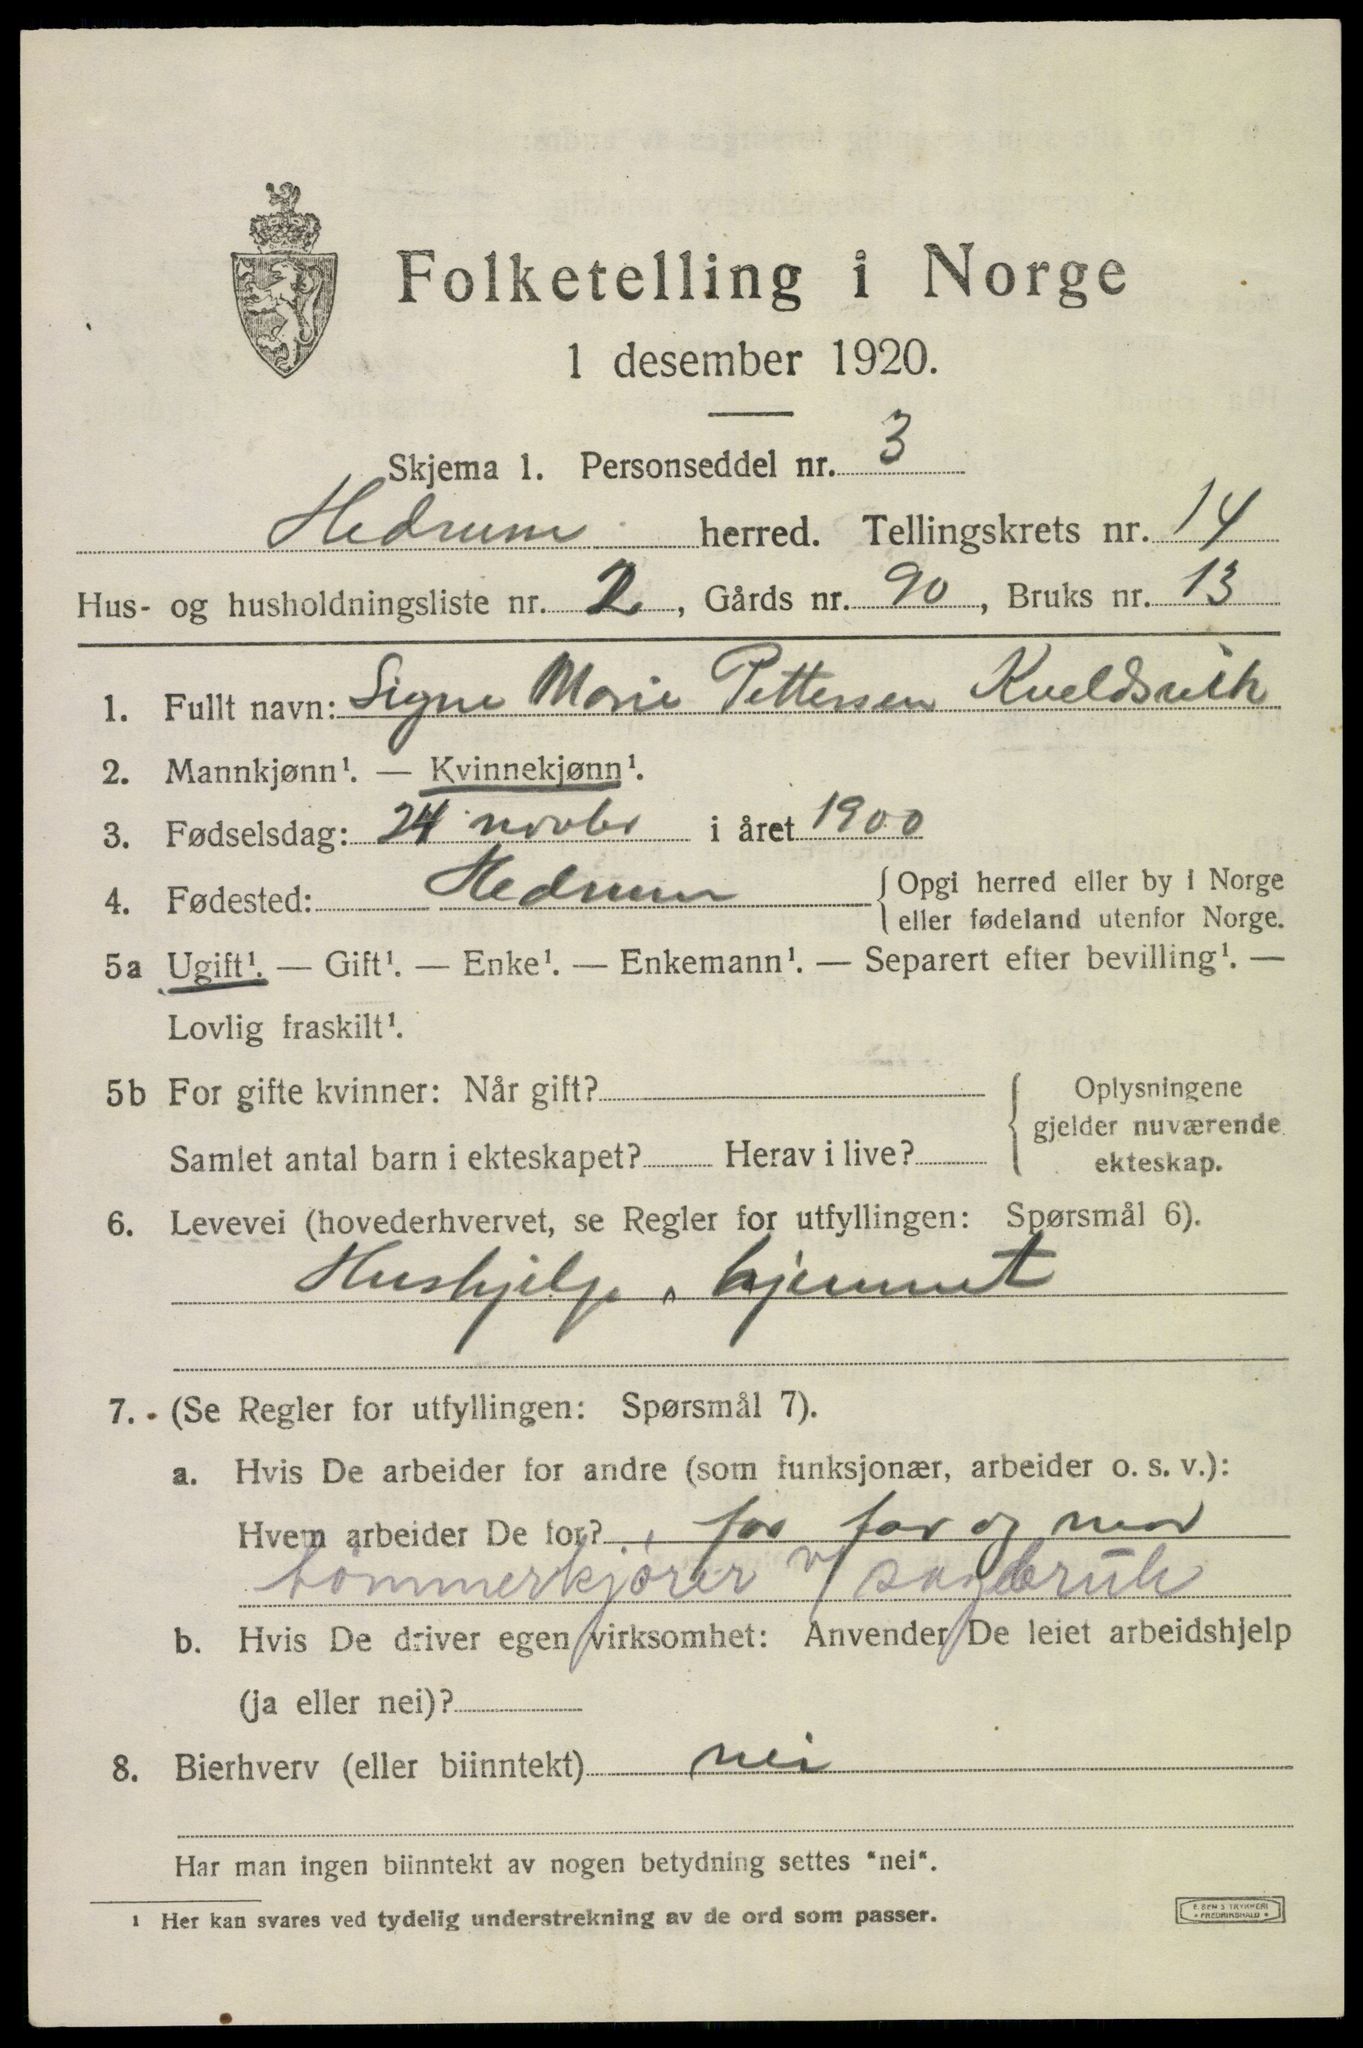 Folketelling i Norge
1 desember 1920.
Skjema 1. Personseddel nr. 3
Hedrum herred. Tellingskrets nr. 14
Hus- og husholdningsliste nr. 2, Gårds nr. 90, Bruks nr. 13
1. Fullt navn: Signe Marie Pettersen
2. Mannkjønn¹. — Kvinnekjønn¹.
3. Fødselsdag: 24 novbr i året 1900
4. Fødested: Hedrum {Opgi herred eller by i Norge
eller fødeland utenfor Norge.
5a Ugift¹. — Gift¹. — Enke¹. — Enkemann¹. — Separert efter bevilling¹. —
Lovlig fraskilt¹.
5b For gifte kvinner: Når gift?
Samlet antal barn i ekteskapet? Herav i live?
Oplysningene
gjelder nuværende
ekteskap.
6. Levevei (hovederhvervet, se Regler for utfyllingen: Spørsmål 6).
Hushjelp i hjemmet
7. (Se Regler for utfyllingen: Spørsmål 7).
a. Hvis De arbeider for andre (som funksjonær, arbeider o. s. v.):
Hvem arbeider De for? for far og mor
tømmerkjører v/ sagbruk
b. Hvis De driver egen virksomhet: Anvender De leiet arbeidshjelp
(ja eller nei)?
8. Bierhverv (eller biinntekt) nei
Har man ingen biinntekt av nogen betydning settes "nei".
¹ Her kan svares ved tydelig understrekning av de ord som passer.